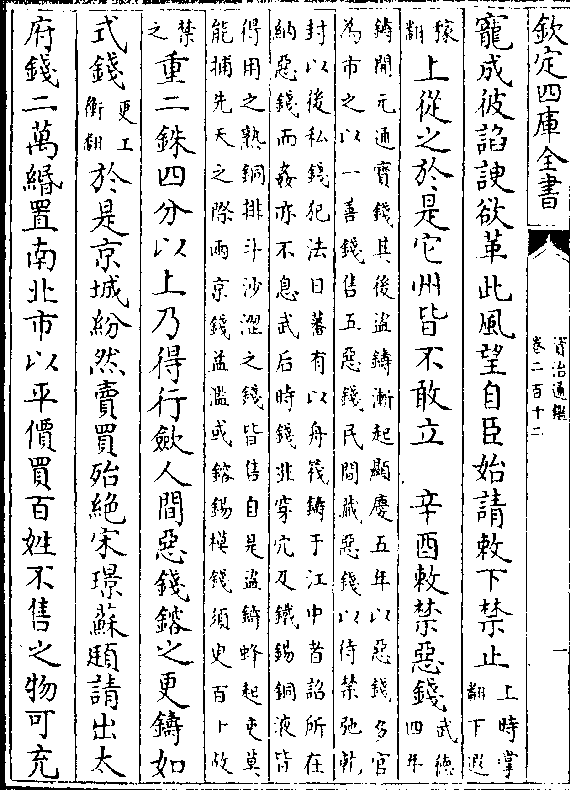 欽定四庫全書
資治通鑑
卷二百十二
一
寵成彼諂諛欲革此風望自臣始請敕下禁止
上時掌
翻下遐
稼
翻
上從之於是它州皆不敢立
辛酉敕禁惡錢
武德
四年
鑄開元通寶錢其後盜鑄漸起顯慶五年以惡錢多官
為市之以一善錢售五惡錢民間藏惡錢以待禁弛乾
封以後私錢犯法日蕃有以舟筏鑄于江中者詔所在
納惡錢而姦亦不息武后時錢非穿穴及鐵錫銅液皆
得用之熟銅排斗沙澀之錢皆售自是盜鑄蜂起吏莫
能捕先天之際兩京錢益濫或鎔錫模錢須臾百十故
禁
之
重二銖四分以上乃得行斂人間惡錢鎔之更鑄如
式錢
更工
衡翻
於是京城紛然賣買殆絶宋璟蘇頲請出太
府錢二萬緡置南北市以平價買百姓不售之物可充